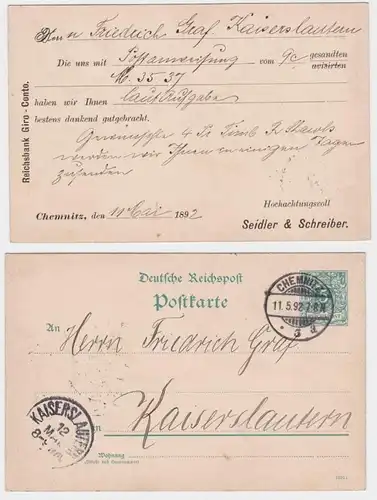 Herrn Friedrich Graf Kaiserslautern
Die uns mit Postanweisung vom 9c gesandten
avisirten
M. 35.37
haben wir Ihnen laut Aufgabe
bestens dankend gutgebracht.
Gewünschte 4
werden wir Ihnen in einigen Tagen
zusenden
Hochachtungsvoll
Chemnitz, den 11 Mai 1892
Seidler & Schreiber.
Reichsbank Giro-Conto.
Deutsche Reichspost
Postkarte
CHEMNITZ
11.5.92.7-8N
An
Herrn Friedrich Graf
in
Kaiserslautern
KAISERSLAUTERN
12
MAI
Wohnung